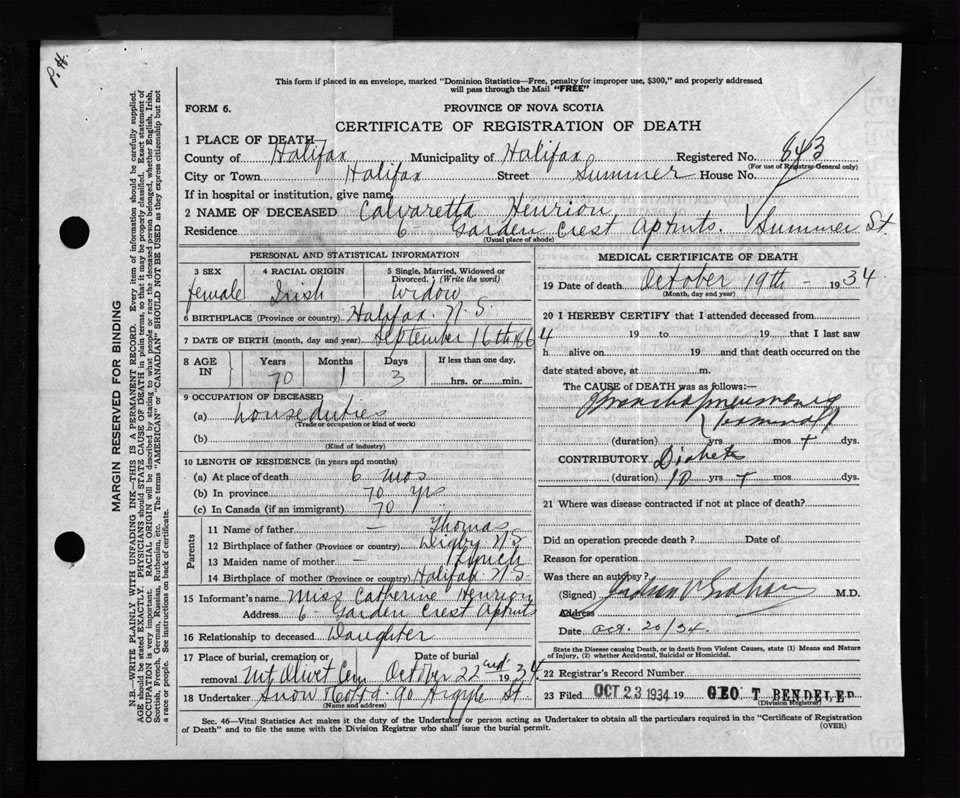 P. H.
This form if placed in an envelope, marked "Dominion Statistics—Free, penalty for improper use, $300," and properly addressed
will pass through the Mail "FREE"
FORM 6. PROVINCE OF NOVA SCOTIA
CERTIFICATE OF REGISTRATION OF DEATH
1 PLACE OF DEATH—
County of Halifax Municipality of Halifax Registered No. 843
(For use of Registrar General only)
City or Town Halifax Street Summer House No.
If in hospital or institution, give name
2 NAME OF DECEASED Calvaretta Henrion
Residence 6 - Garden Crest Aptmts. Summer St.
(Usual place of abode)
PERSONAL AND STATISTICAL INFORMATION
3 SEX 4 RACIAL ORIGIN 5 Single, Married, Widowed or Divorced. (Write the word)
female Irish Widow
6 BIRTHPLACE (Province or country) Halifax. N. S.
7 DATE OF BIRTH (month, day and year) September 16th 1864
8 AGE IN Years Months Days If less than one day,
70 1 3 hrs. or min.
9 OCCUPATION OF DECEASED
(a) house duties
(Trade or occupation or kind of work)
(b)
(Kind of industry)
10 LENGTH OF RESIDENCE (in years and months)
(a) At place of death 6 mos
(b) In province 70 yrs
(c) In Canada (if an immigrant) 70
Parents
11 Name of father — Thomas
12 Birthplace of father (Province or country) Digby N S
13 Maiden name of mother — Lynch
14 Birthplace of mother (Province or country) Halifax N S.
15 Informant's name Miss Catherine Henrion
Address 6 - Garden Crest Aptmts
16 Relationship to deceased Daughter
17 Place of burial, cremation or removal Mt Olivet Cem Date of burial October 22nd 1934
18 Undertaker Snow & Co Ltd. 90 Argyle St.
(Name and address)
MEDICAL CERTIFICATE OF DEATH
19 Date of death October 19th - 1934
(Month, day and year)
20 I HEREBY CERTIFY that I attended deceased from
19 to 19 that I last saw
h alive on 19 and that death occurred on the
date stated above, at m.
The CAUSE OF DEATH was as follows:—
Bronchopneumonia
(terminal)
(duration) yrs mos + dys.
CONTRIBUTORY Diabetes
(duration) 10 yrs + mos dys.
21 Where was disease contracted if not at place of death?
Did an operation precede death? Date of
Reason for operation
Was there an autopsy?
(Signed) Judson V Graham M.D.
Address
Date Oct. 20/34.
State the Disease causing Death, or in death from Violent Causes, state (1) Means and Nature
of Injury, (2) whether Accidental, Suicidal or Homicidal.
22 Registrar's Record Number
23 Filed OCT 23 1934 19 GEO. T BENDELED
(Division Registrar)
Sec. 46—Vital Statistics Act makes it the duty of the Undertaker or person acting as Undertaker to obtain all the particulars required in the "Certificate of Registration
of Death" and to file the same with the Division Registrar who shall issue the burial permit. (OVER)
MARGIN RESERVED FOR BINDING
N.B.—WRITE PLAINLY, WITH UNFADING INK—THIS IS A PERMANENT RECORD. Every item of information should be carefully supplied.
AGE should be stated EXACTLY. PHYSICIANS should STATE CAUSE OF DEATH in plain terms, so that it may be properly classified. Exact statement of
OCCUPATION is very important. RACIAL ORIGIN will be described by stating to what people or race the deceased person belonged, whether English, Irish,
Scottish, French, German, Russian, Ruthenian, etc. The terms "AMERICAN" or "CANADIAN" SHOULD NOT BE USED as they express citizenship but not
a race or people. See instructions on back of certificate.